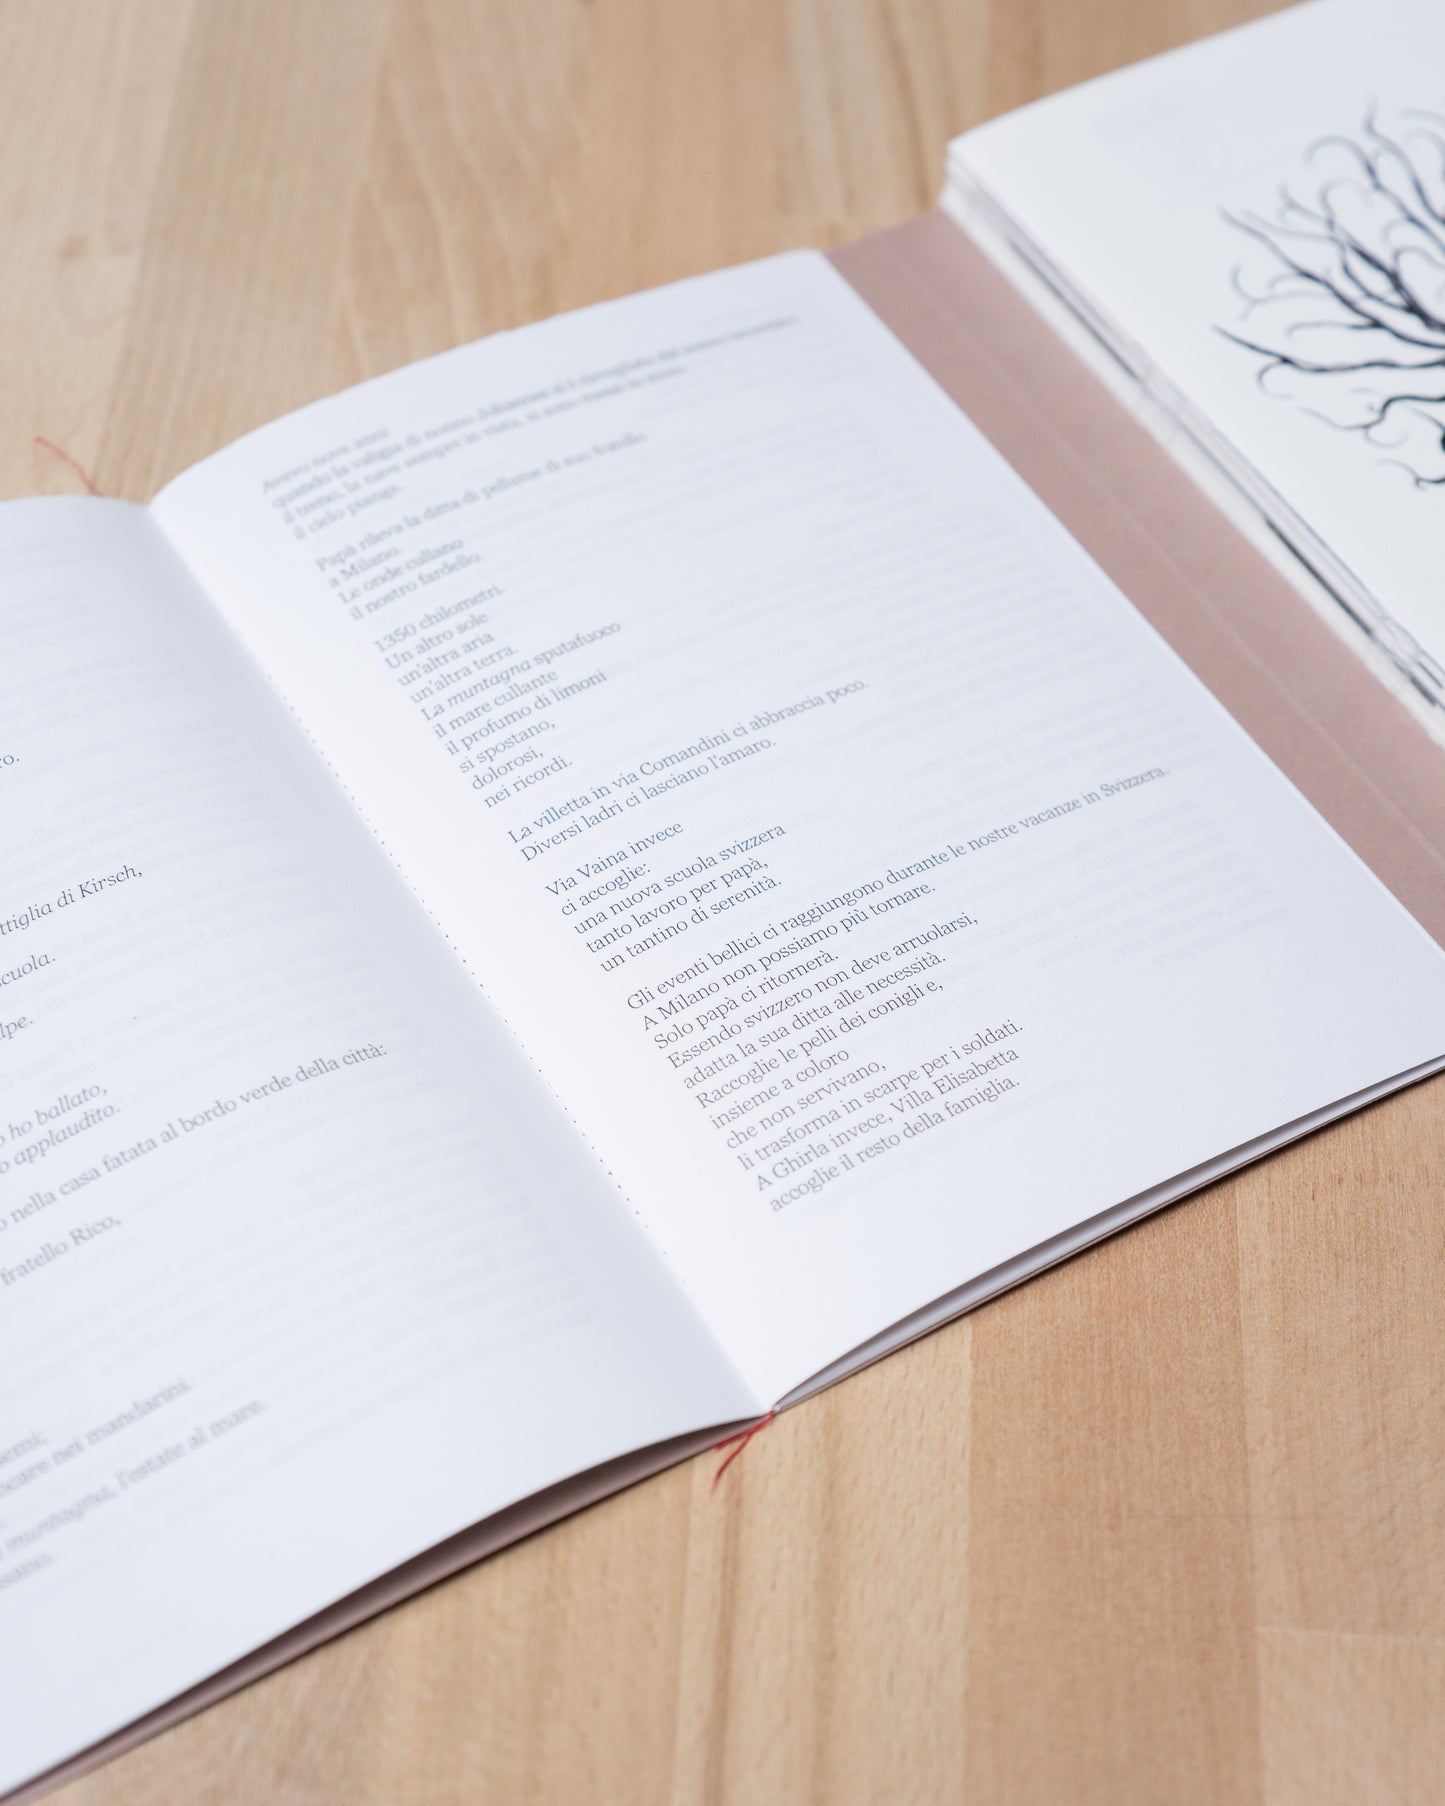 ro.
ttiglia di Kirsch,
cuola.
lpe.
o ho ballato,
o applaudito.
o nella casa fatata al bordo verde della città:
fratello Rico,
emi;
care nei mandarini.
muntagna, l'estate al mare.
sano.
Avevo nove anni
quando la valigia di nonno Johannes si è risvegliata dal
il treno, la nave sempre in vista, si sono messi in moto
il cielo piange.
Papà rileva la ditta di pellame di suo fratello
a Milano.
Le onde cullano
il nostro fardello.
1350 chilometri.
Un altro sole
un'altra aria
un'altra terra.
La muntagna sputafuoco
il mare cullante
il profumo di limoni
si spostano,
dolorosi,
nei ricordi.
La villetta in via Comandini ci abbraccia poco.
Diversi ladri ci lasciano l'amaro.
Via Vaina invece
ci accoglie:
una nuova scuola svizzera
tanto lavoro per papà,
un tantino di serenità.
Gli eventi bellici ci raggiungono durante le nostre vacanze in Svizzera.
A Milano non possiamo più tornare.
Solo papà ci ritornerà.
Essendo svizzero non deve arruolarsi,
adatta la sua ditta alle necessità.
Raccoglie le pelli dei conigli e,
insieme a coloro
che non servivano,
li trasforma in scarpe per i soldati.
A Ghirla invece, Villa Elisabetta
accoglie il resto della famiglia.